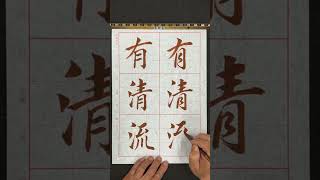 有 有
清 清
流